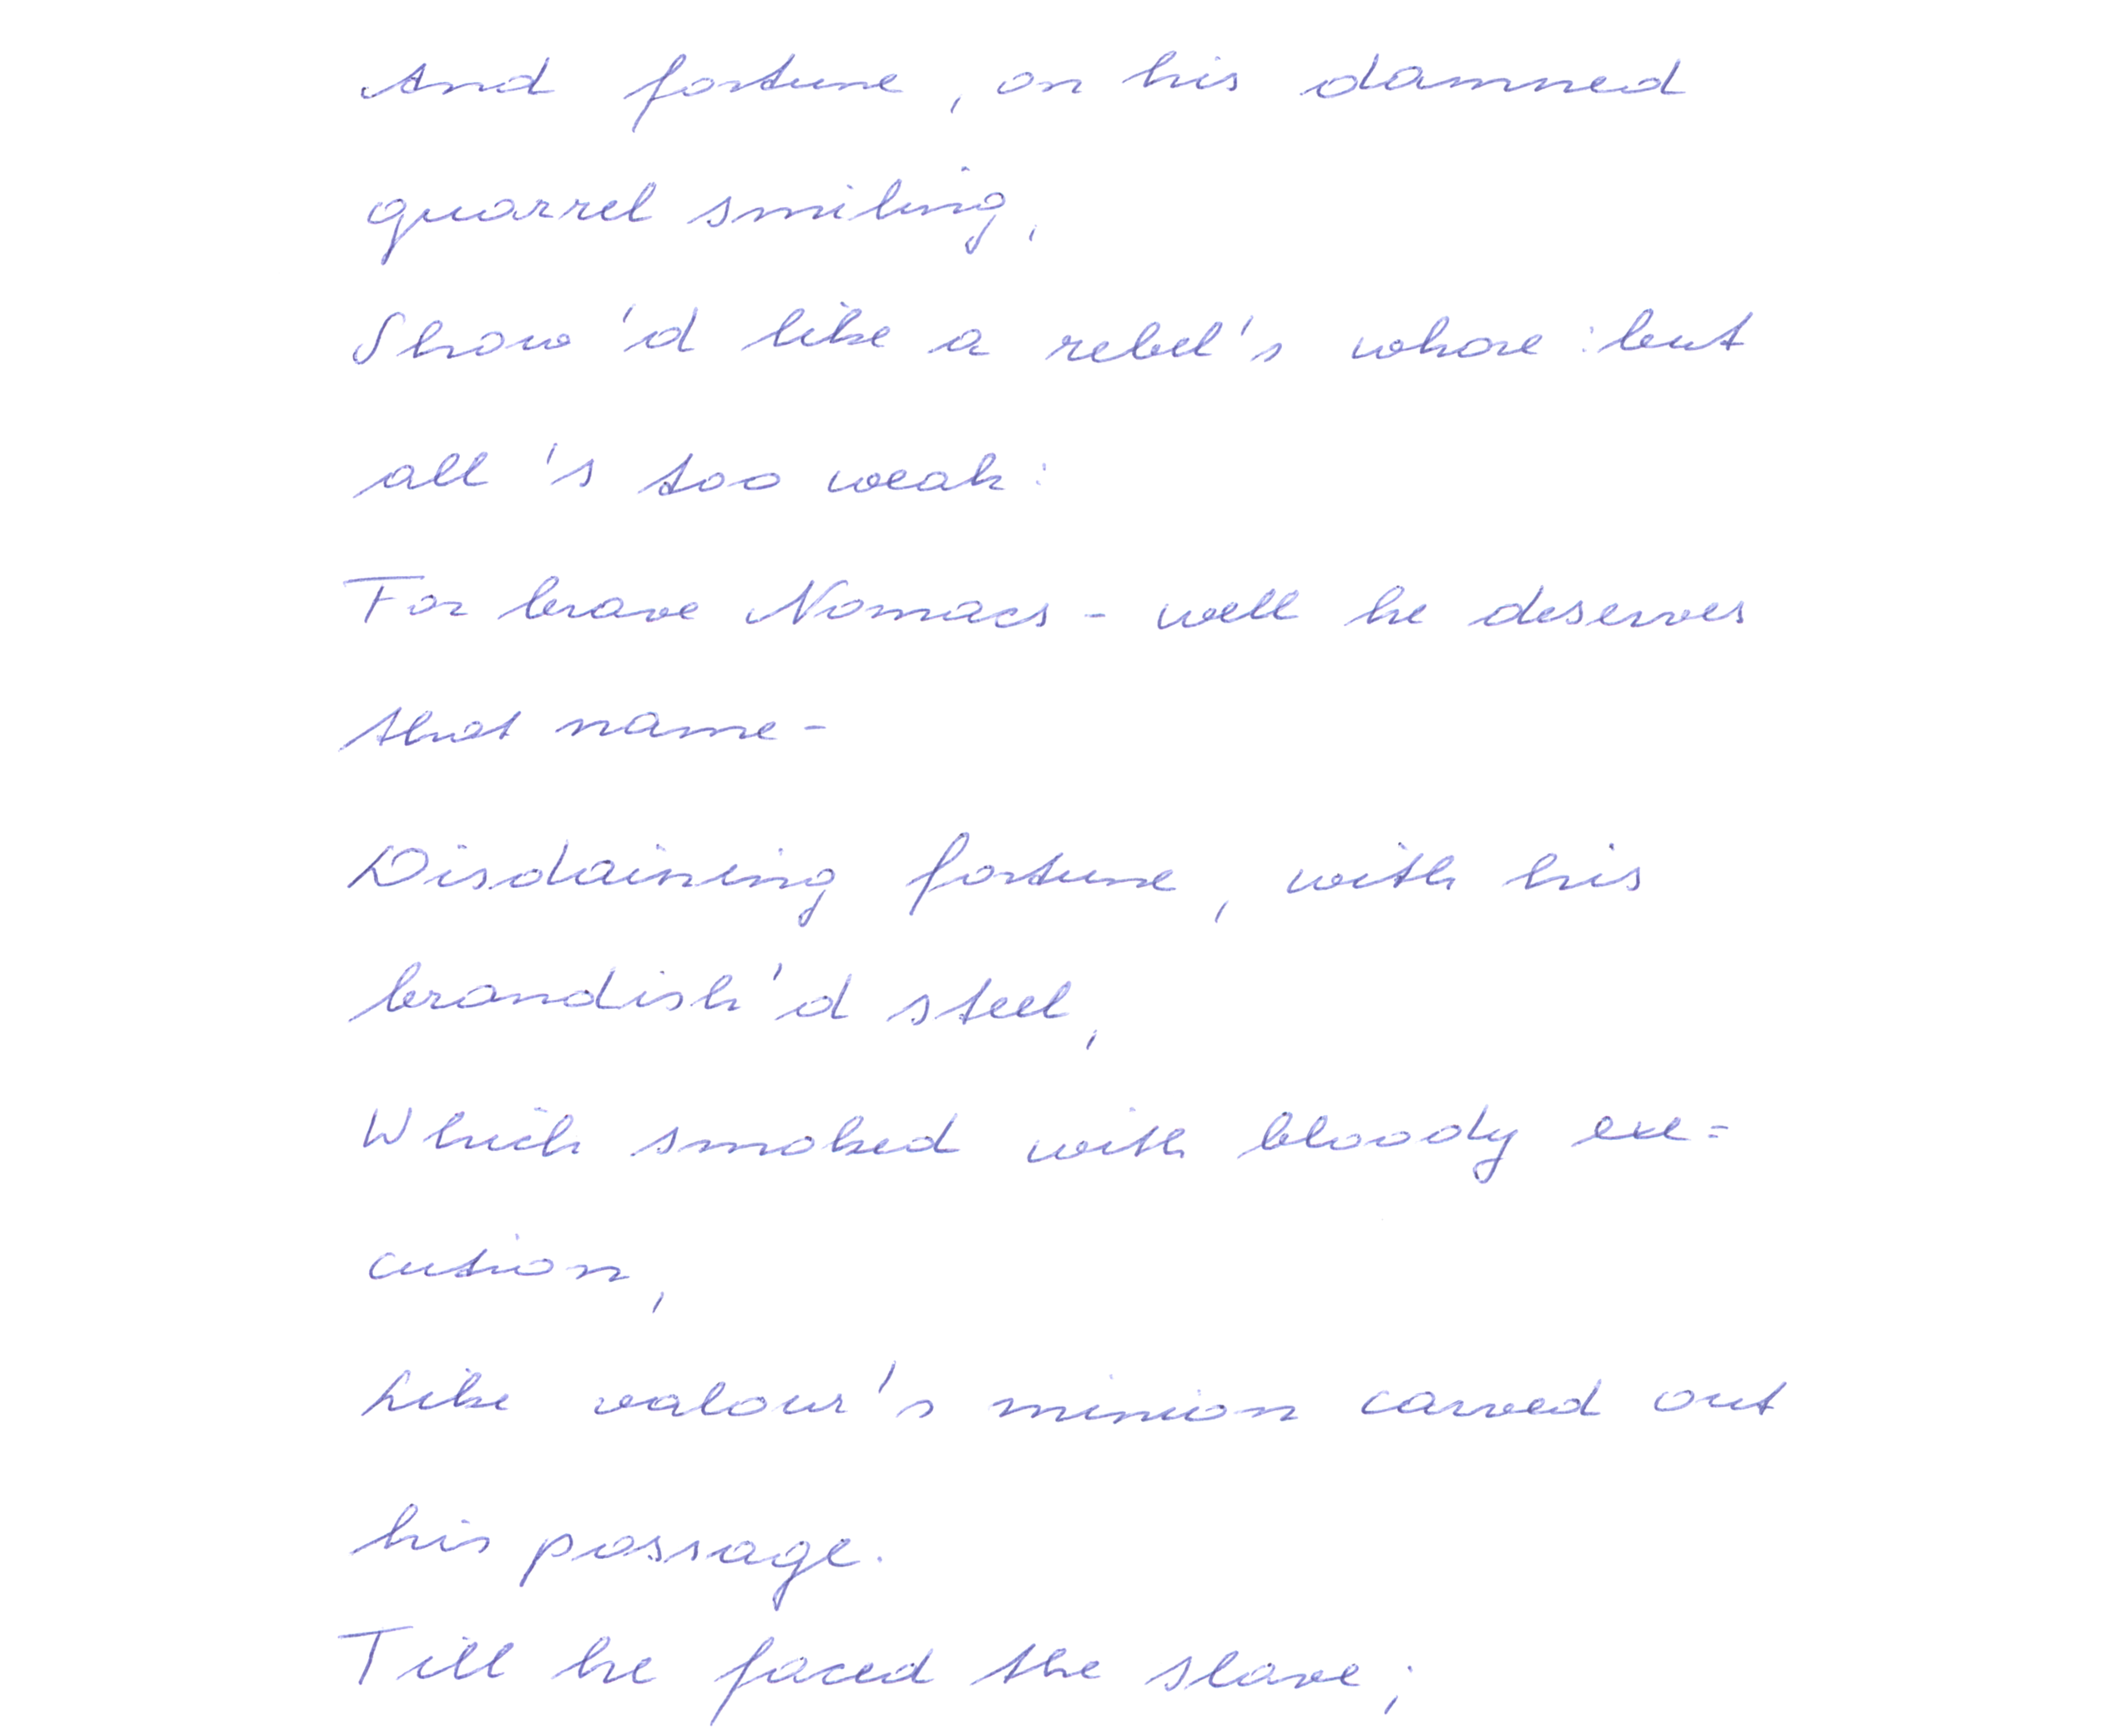 And fortune, on his damned
quarrel smiling,
Show'd like a rebel's whore: but
all's too weak:
For brave Nomacs - well he deserves
that name -
Disdaining fortune, with his
brandish'd steel,
Which smoked with bloody exe=
cution,
Like valour's minion carved out
his passage.
Till he faced the slave;